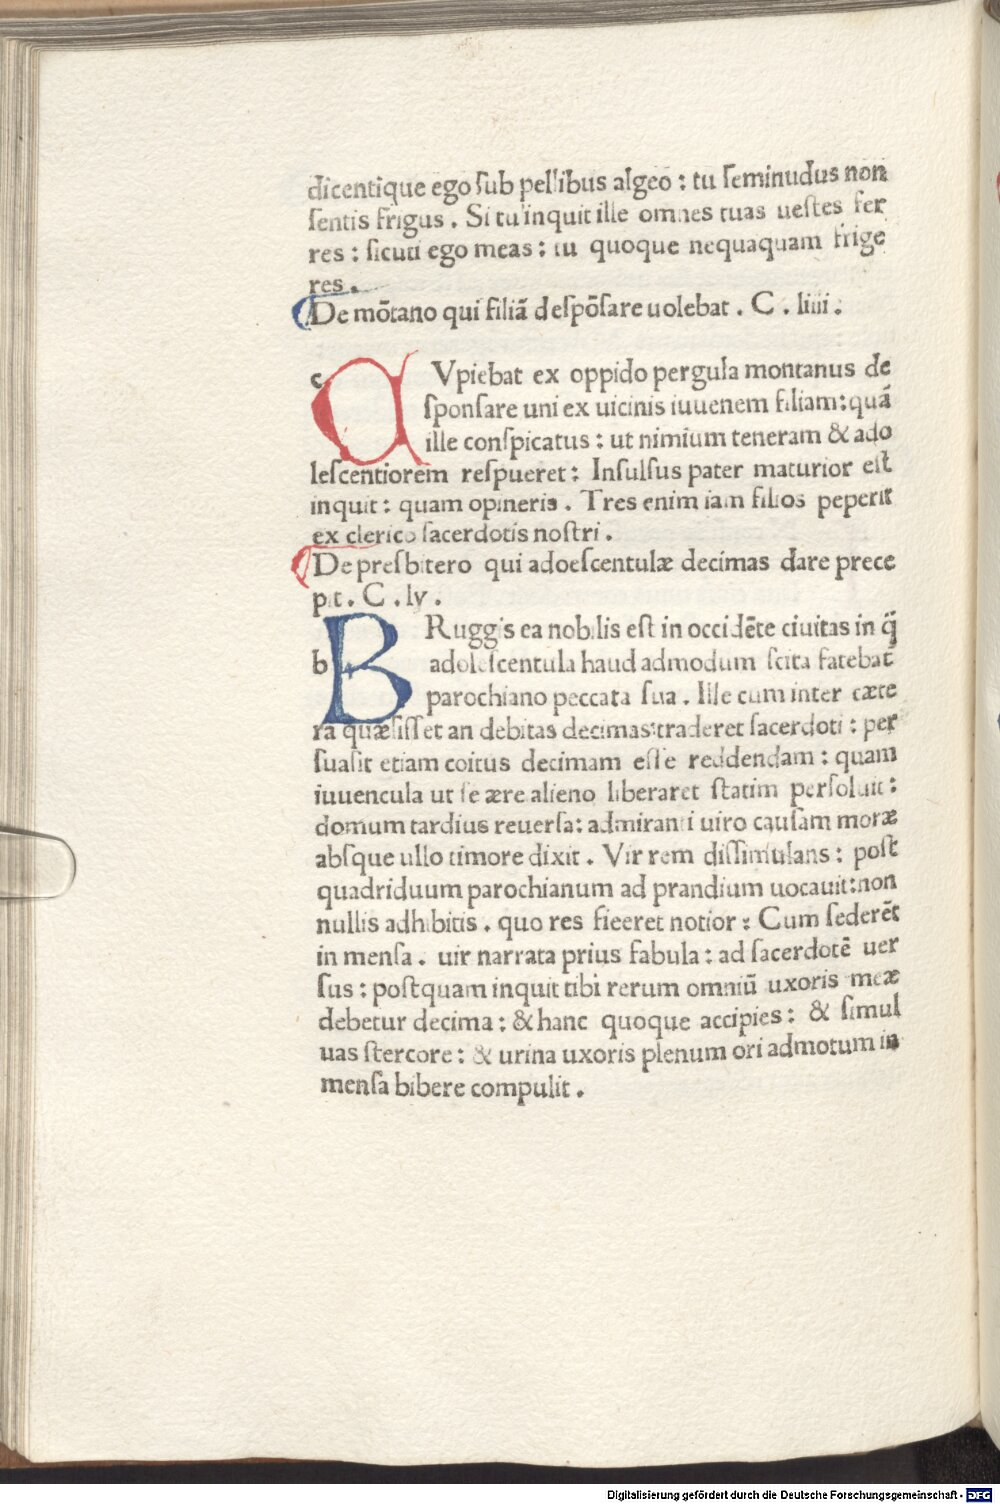 dicentique ego ſub pellibus algeo : tu ſeminudus non
ſentis frigus . Si tu inquit ille omnes tuas ueſtes fer
res : ſicuti ego meas : tu quoque nequaquam frige
res .
De mõtano qui filiã deſpõſare uolebat . C . liiii .
c A Vpiebat ex oppido pergula montanus de
ſponſare uni ex uicinis iuuenem filiam : quã
ille conſpicatus : ut nimium teneram & ado
leſcentiorem reſpueret : Inſulſus pater maturior eſt
inquit : quam opineris . Tres enim iam filios peperit
ex clerico ſacerdotis noſtri .
De preſbitero qui adoeſcentulæ decimas dare prece
pit . C . lv .
b B Ruggis ea nobilis eſt in occidẽte ciuitas in q̃
adoleſcentula haud admodum ſcita fatebat̃
parochiano peccata ſua . Ille cum inter cæte
ra quæſiſſet an debitas decimas traderet ſacerdoti : per
ſuaſit etiam coitus decimam eſſe reddendam : quam
iuuencula ut ſe ære alieno liberaret ſtatim perſoluit :
domum tardius reuerſa : admiranti uiro cauſam moræ
abſque ullo timore dixit . Vir rem diſſimulans : poſt
quadriduum parochianum ad prandium uocauit : non
nullis adhibitis . quo res fieeret notior : Cum ſederẽt
in menſa . uir narrata prius fabula : ad ſacerdotẽ uer
ſus : poſtquam inquit tibi rerum omniũ uxoris meæ
debetur decima : & hanc quoque accipies : & ſimul
uas ſtercore : & urina uxoris plenum ori admotum in
menſa bibere compulit .
Digitalisierung gefördert durch die Deutsche Forschungsgemeinschaft - DFG